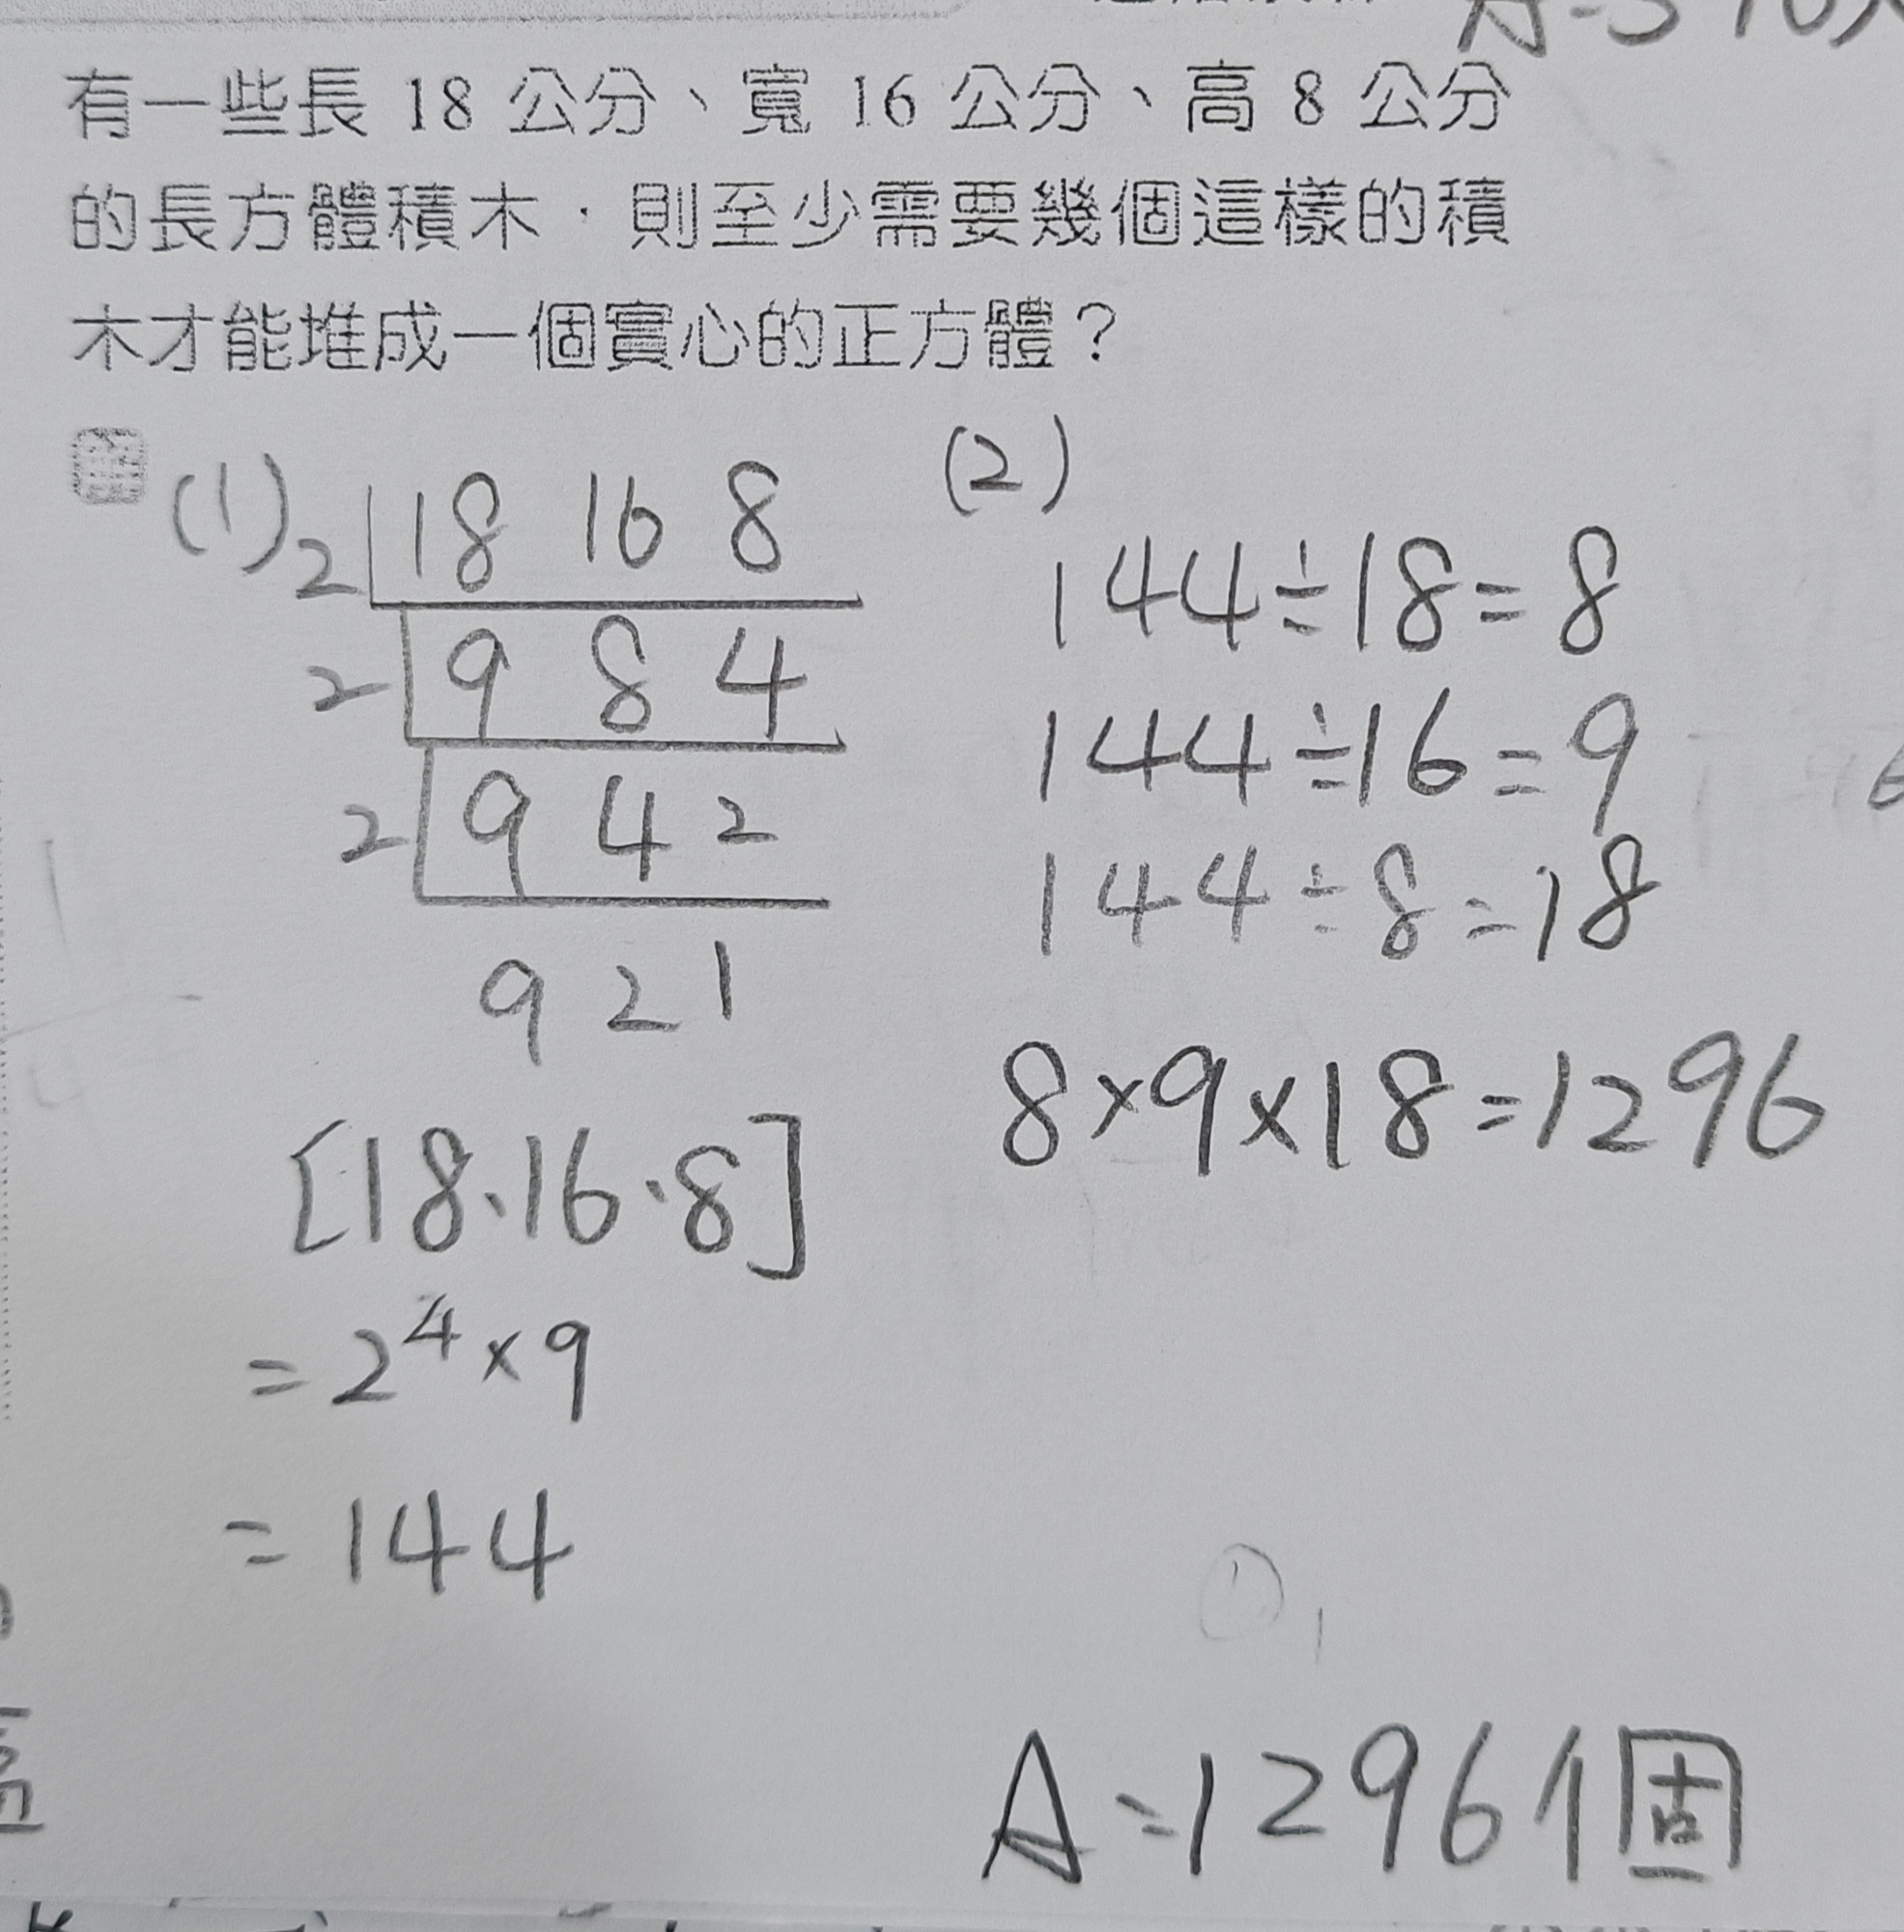 有一些長 18 公分、寬 16 公分、高 8 公分
的長方體積木，則至少需要幾個這樣的積
木才能堆成一個實心的正方體？
解
(1)
2 18 16 8
2 9 8 4
2 9 4 2
9 2 1
[18、16、8]
= 2⁴ × 9
= 144
(2)
144÷18=8
144÷16=9
144÷8=18
8×9×18=1296
A=1296個